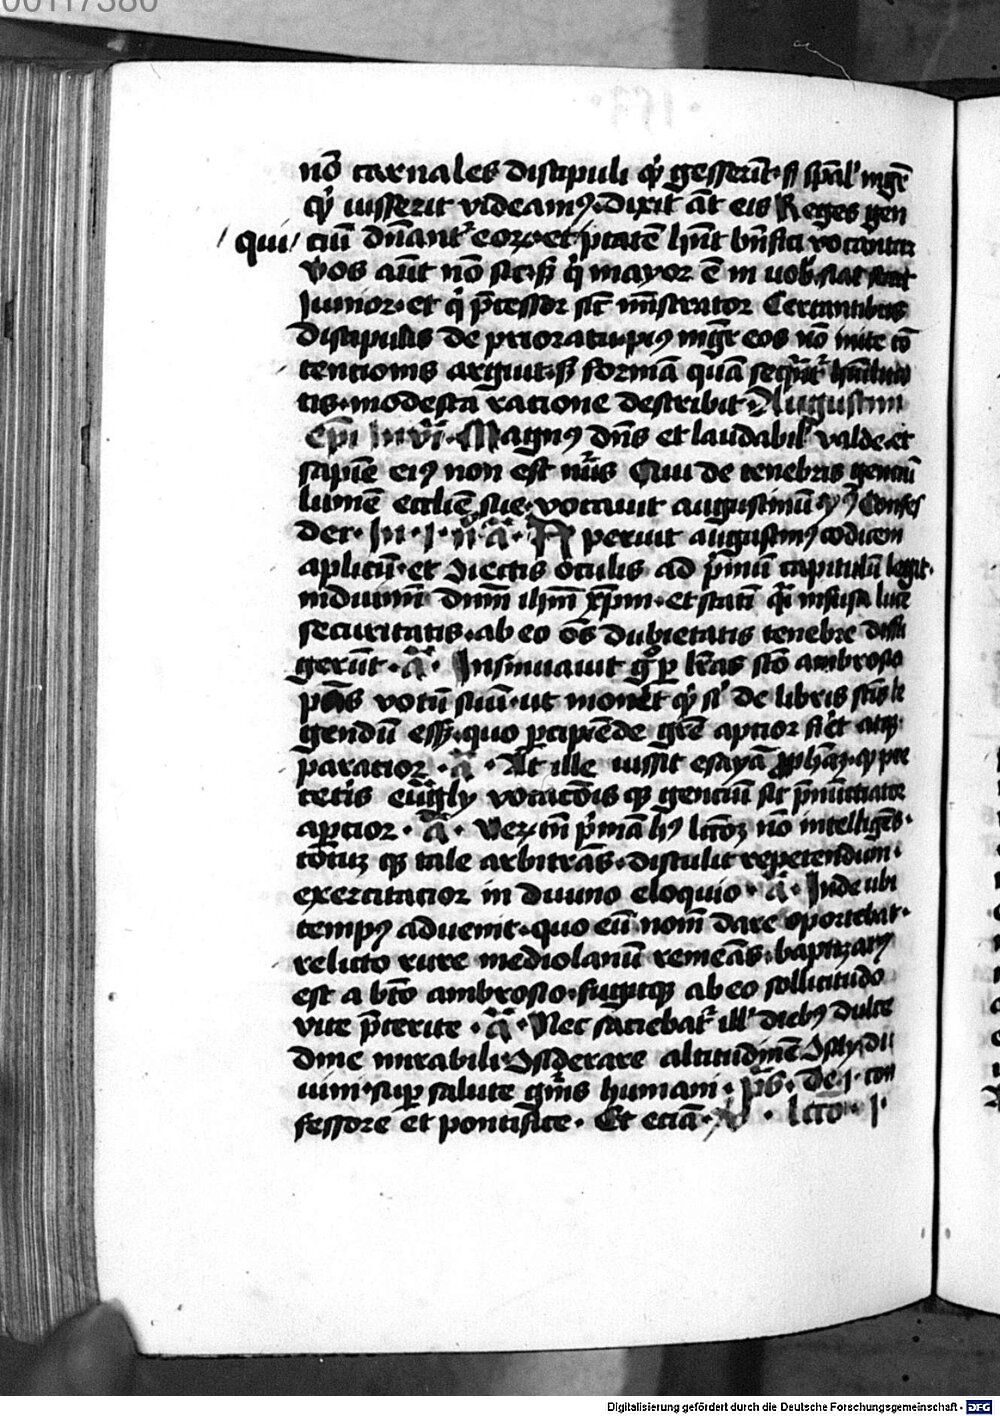 00117380
nō carnales discipuli qͥ gesserūt· sꝫ sp̄al' mgr̄
qͥ iusserit videamꝰ· Dixit āt eis Reges gen
qui/ ciū dn̄ant᷑ eoꝝ· et ptatē hn̄t bn̄fici vocantur
vos aūt nō sic· sꝫ qͥ mayor ē in uob̄ fiat sicut
Junior· et qͥ p̄cessor sic̄ mīstrator Certantibus
discipulis de prioratu· piꝰ mgr̄ eos nō inite cō
tencionis arguit· sꝫ formā quā seqn̄t᷑ humilita
tis· modesta ratione describit· Augustini
ep̄i In vī· Magnꝰ dn̄s et laudabil' valde· et
sapiē eiꝰ non est nūs Qui de tenebris genciū
lumē eccliē sue· vocauit augustinū
der· In ·1· n̄ ā· Aperuit augustinꝰ codicem
aplicū· et iectis oculis ad p̄mū capitulū legit·
induimī dnm̄ ihm̄ xp̄m· et statī qͣi infusa luce
securitatis· ab eo om̄s dubietatis tenebre diffu
gerūt· ā· Insinuauit gͦ ꝑ lr̄as sc̄o ambrosio
pn̄s votū suū· ut monet qͥ s' de libris scīs le
gendū essꝫ· quo ꝑcipiēde grē aptior fiet atqꝫ
paracior· ā· At ille iussit esayā ꝓphāꝫ· qꝫ pre
ceteis euāgly vocacōis qꝫ genciū sit p̄nūctiator
aꝑcior· ā· Veꝝ tn̄ p̄mā hꝰ lc̄oꝫ nō intelligēs·
totuꝫ qꝫ tale arbitrās· distulit repetendum·
exercitacior in diuino eloquio· ā· Inde ubi
tempꝰ aduenit· quo eū nom̄ dare oportebat·
relicto rure mediolanū remeās· baptizatꝰ
est a bt̄o ambrosio· fugitqꝫ ab eo sollicitudo
vite p̄terite· ā· Nec saciebat᷑ ill' diebꝰ dulce
dine mirabili· ꝯsiderare altitudinē ꝯsilii di
uini· suꝑ salute gn̄is humani· ps̄· De ·1· con
fessore et pontifice· Et eciā· v̄· lc̄o ·1·
Digitalisierung gefördert durch die Deutsche Forschungsgemeinschaft - DFG